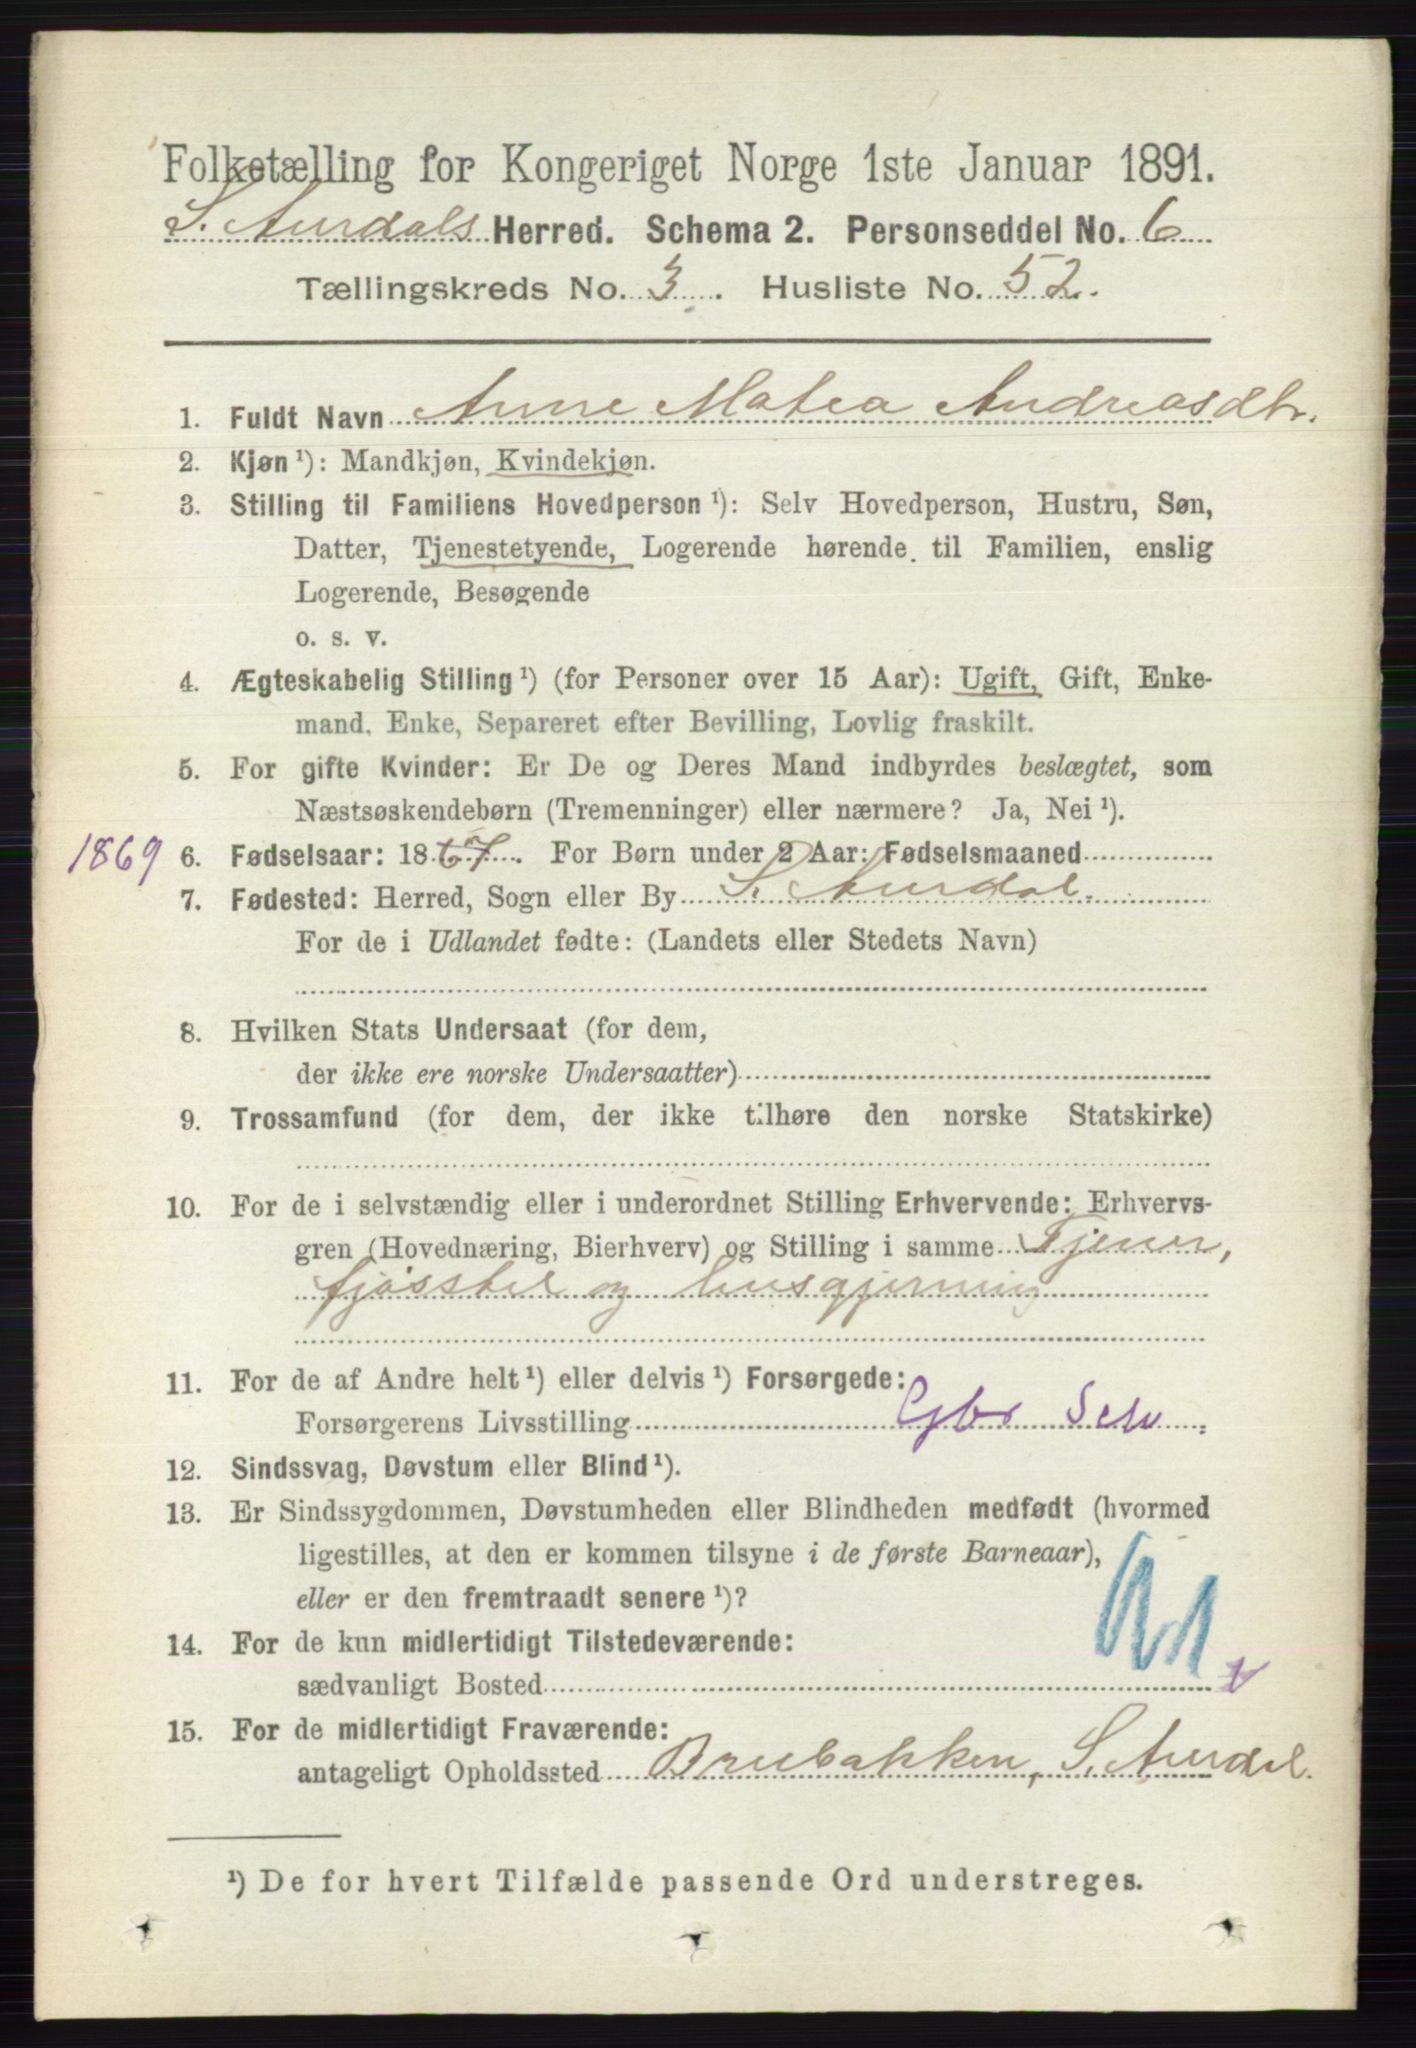 Folketælling for Kongeriget Norge 1ste Januar 1891.
S. Aurdals Herred. Schema 2. Personseddel No. 6
Tællingskreds No. 3. Husliste No. 52.
1. Fuldt Navn Anne Matea Andreasdtr.
2. Kjøn ¹): Mandkjøn, Kvindekjøn.
3. Stilling til Familiens Hovedperson ¹): Selv Hovedperson, Hustru, Søn,
Datter, Tjenestetyende, Logerende hørende til Familien, enslig
Logerende, Besøgende
o. s. v.
4. Ægteskabelig Stilling ¹) (for Personer over 15 Aar): Ugift, Gift, Enke-
mand, Enke, Separeret efter Bevilling, Lovlig fraskilt.
5. For gifte Kvinder: Er De og Deres Mand indbyrdes beslægtet, som
Næstsøskendebørn (Tremenninger) eller nærmere? Ja, Nei ¹).
1869 6. Fødselsaar: 1867. For Børn under 2 Aar: Fødselsmaaned
7. Fødested: Herred, Sogn eller By S. Aurdal.
For de i Udlandet fødte: (Landets eller Stedets Navn)
8. Hvilken Stats Undersaat (for dem,
der ikke ere norske Undersaatter)
9. Trossamfund (for dem, der ikke tilhøre den norske Statskirke)
10. For de i selvstændig eller i underordnet Stilling Erhvervende: Erhvervs-
gren (Hovednæring, Bierhverv) og Stilling i samme Tjener,
fjøsstel og husgjerning
11. For de af Andre helt ¹) eller delvis ¹) Forsørgede:
Forsørgerens Livsstilling Gbr Selv.
12. Sindssvag, Døvstum eller Blind ¹).
13. Er Sindssygdommen, Døvstumheden eller Blindheden medfødt (hvormed
ligestilles, at den er kommen tilsyne i de første Barneaar),
eller er den fremtraadt senere ¹)?
14. For de kun midlertidigt Tilstedeværende:
sædvanligt Bosted
15. For de midlertidigt Fraværende:
antageligt Opholdssted Brubakken, S. Aurdal.
¹) De for hvert Tilfælde passende Ord understreges.